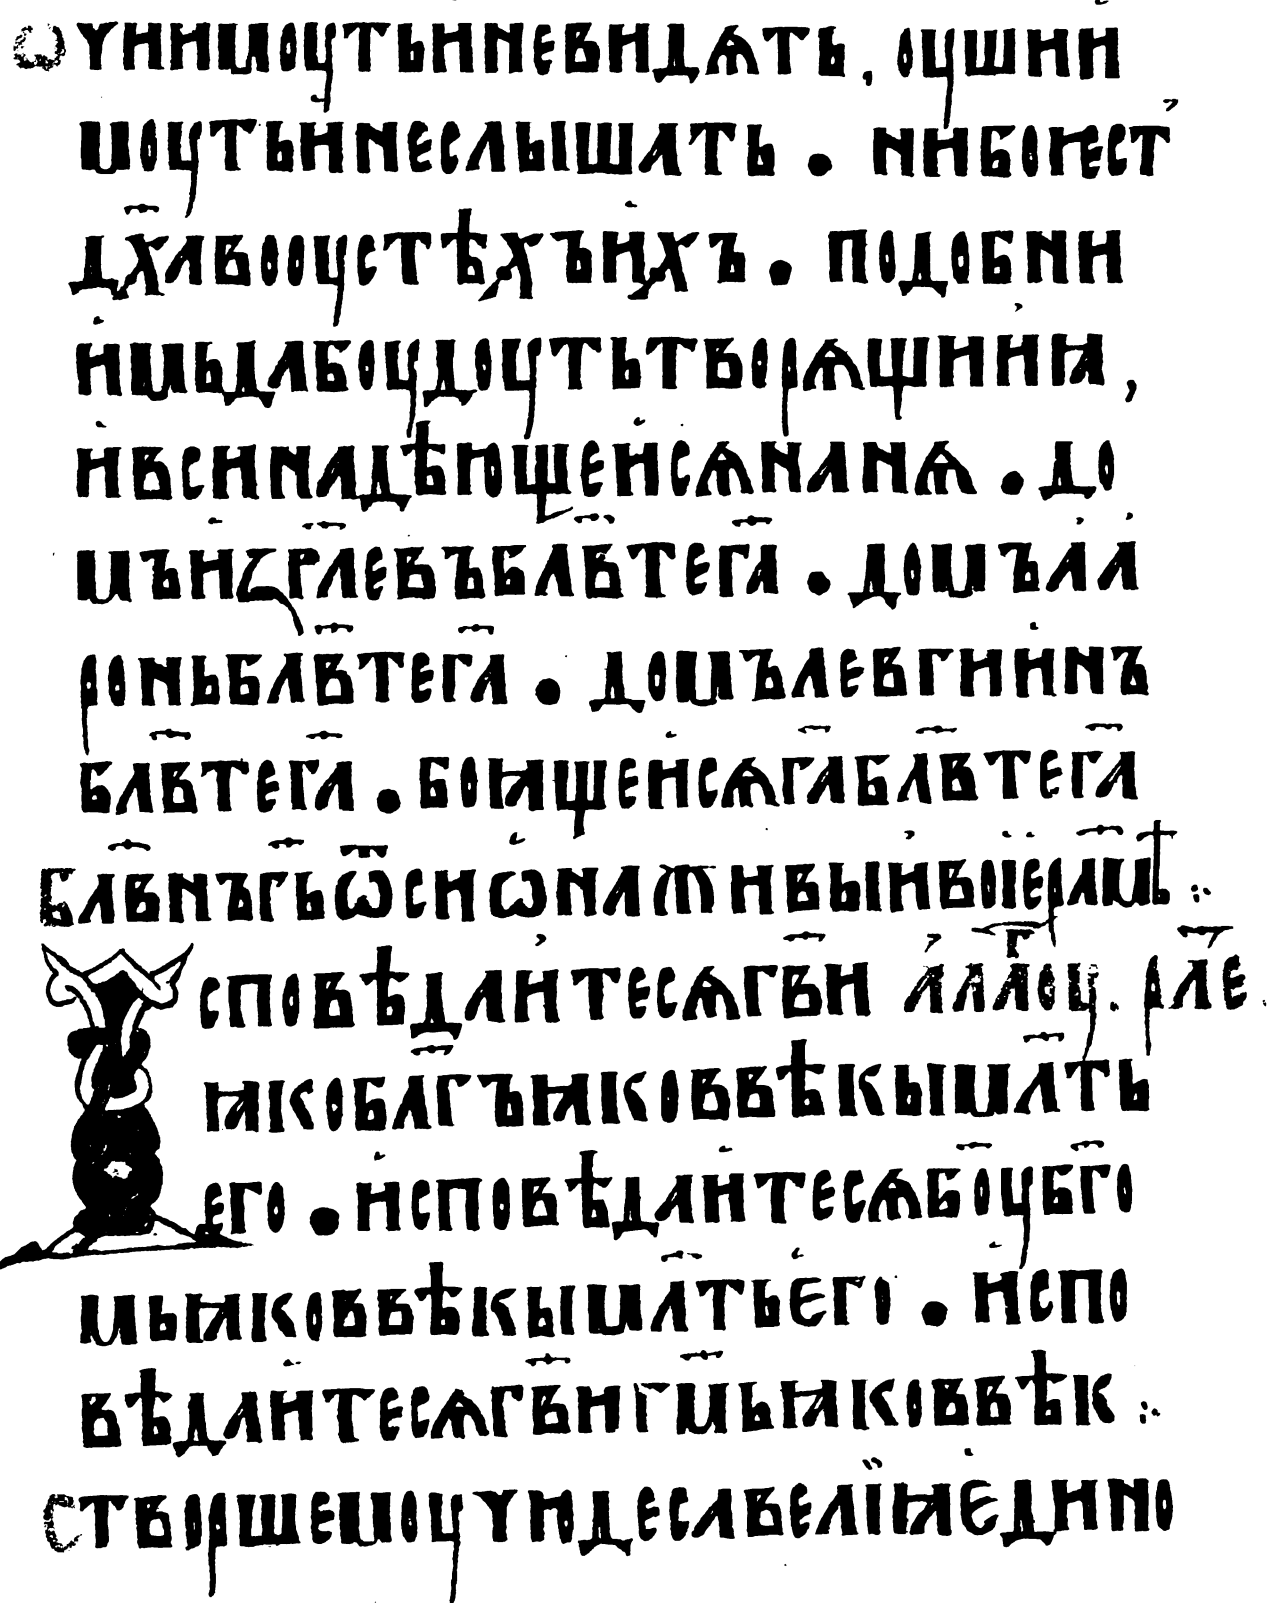 ѡчиимоуть и не видѧть, оуши и
моуть и не слышать • ни бо ѥст
дх҃а во оустѣхъ ихъ • подобни
имь да боудоуть творѧщии ꙗ,
и вси надѣющеи сѧ на нѧ • до
мъ иꙁр҃левъ блв҃те г҃а • домъ аа
ронь блв҃те г҃а • домъ левгиинъ
блв҃те г҃а • боꙗщеи сѧ г҃а блв҃те г҃а
бл҃внъ г҃ь ѿ сиѡна живыи въ іер҃амѣ :·
Исповѣдаите сѧ гв҃и ал҃лгоу. рл҃е.
ꙗко баг҃ъ ꙗко в вѣкы мл҃ть
его • исповѣдаите сѧ бо҃у бг҃о
мь ꙗко в вѣкы мл҃ть его • испо
вѣдаите сѧ гв҃и гм҃ь ꙗко в вѣк :·
створшемоу чюдеса велїꙗ едино